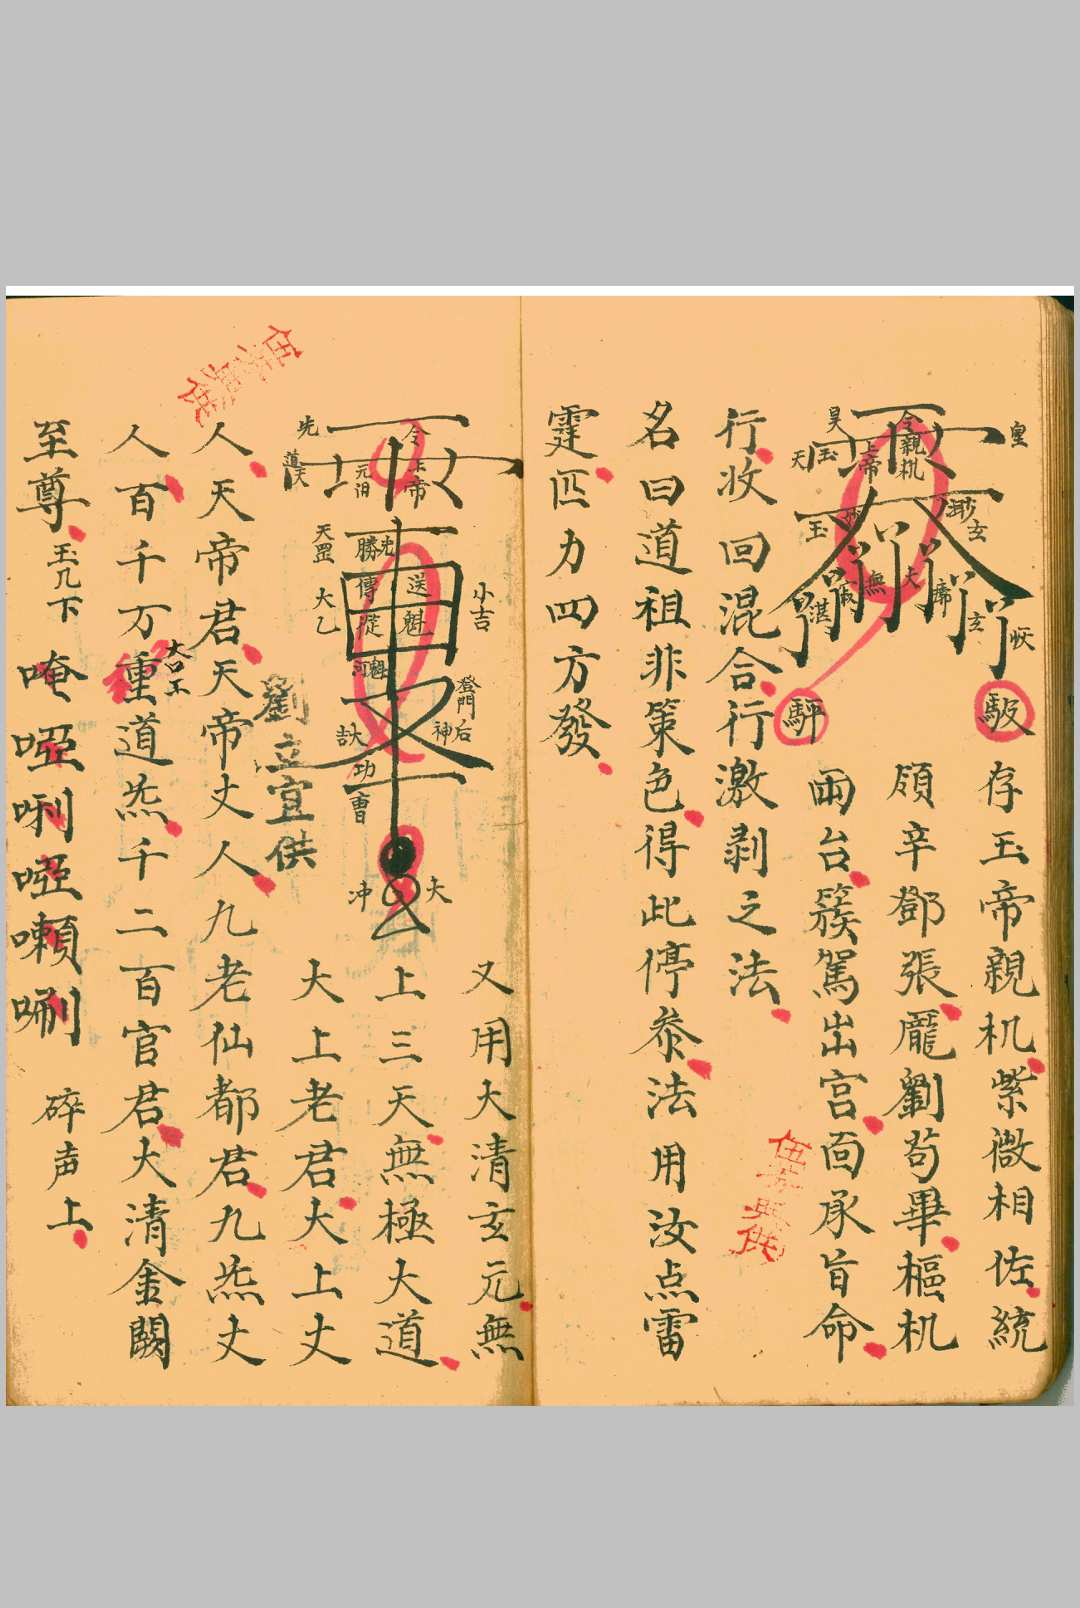 皇
昊
天
玉
上帝
令親机
玄
玉
無
夫
玄
存玉帝親机紫微相佐統
領辛鄧張龐劉苟畢樞机
兩台簇駕出宮面承旨命
行收回混合行激剥之法
名曰道祖非策色得此停叅法用汝点雷
霆匹力四方發
令
上帝
元
先
天罡
大乙
勝光
傳送
從魁
河魁
小吉
登明
神后
功曹
大
冲
又用大清玄元無
上三天無極大道
大上老君大上丈
劉立宣供
人天帝君天帝丈人九老仙都君九炁丈
人百千万重道炁千二百官君大清金闕
至尊玉几下
唵啞唎啞嚬唎
碎声上